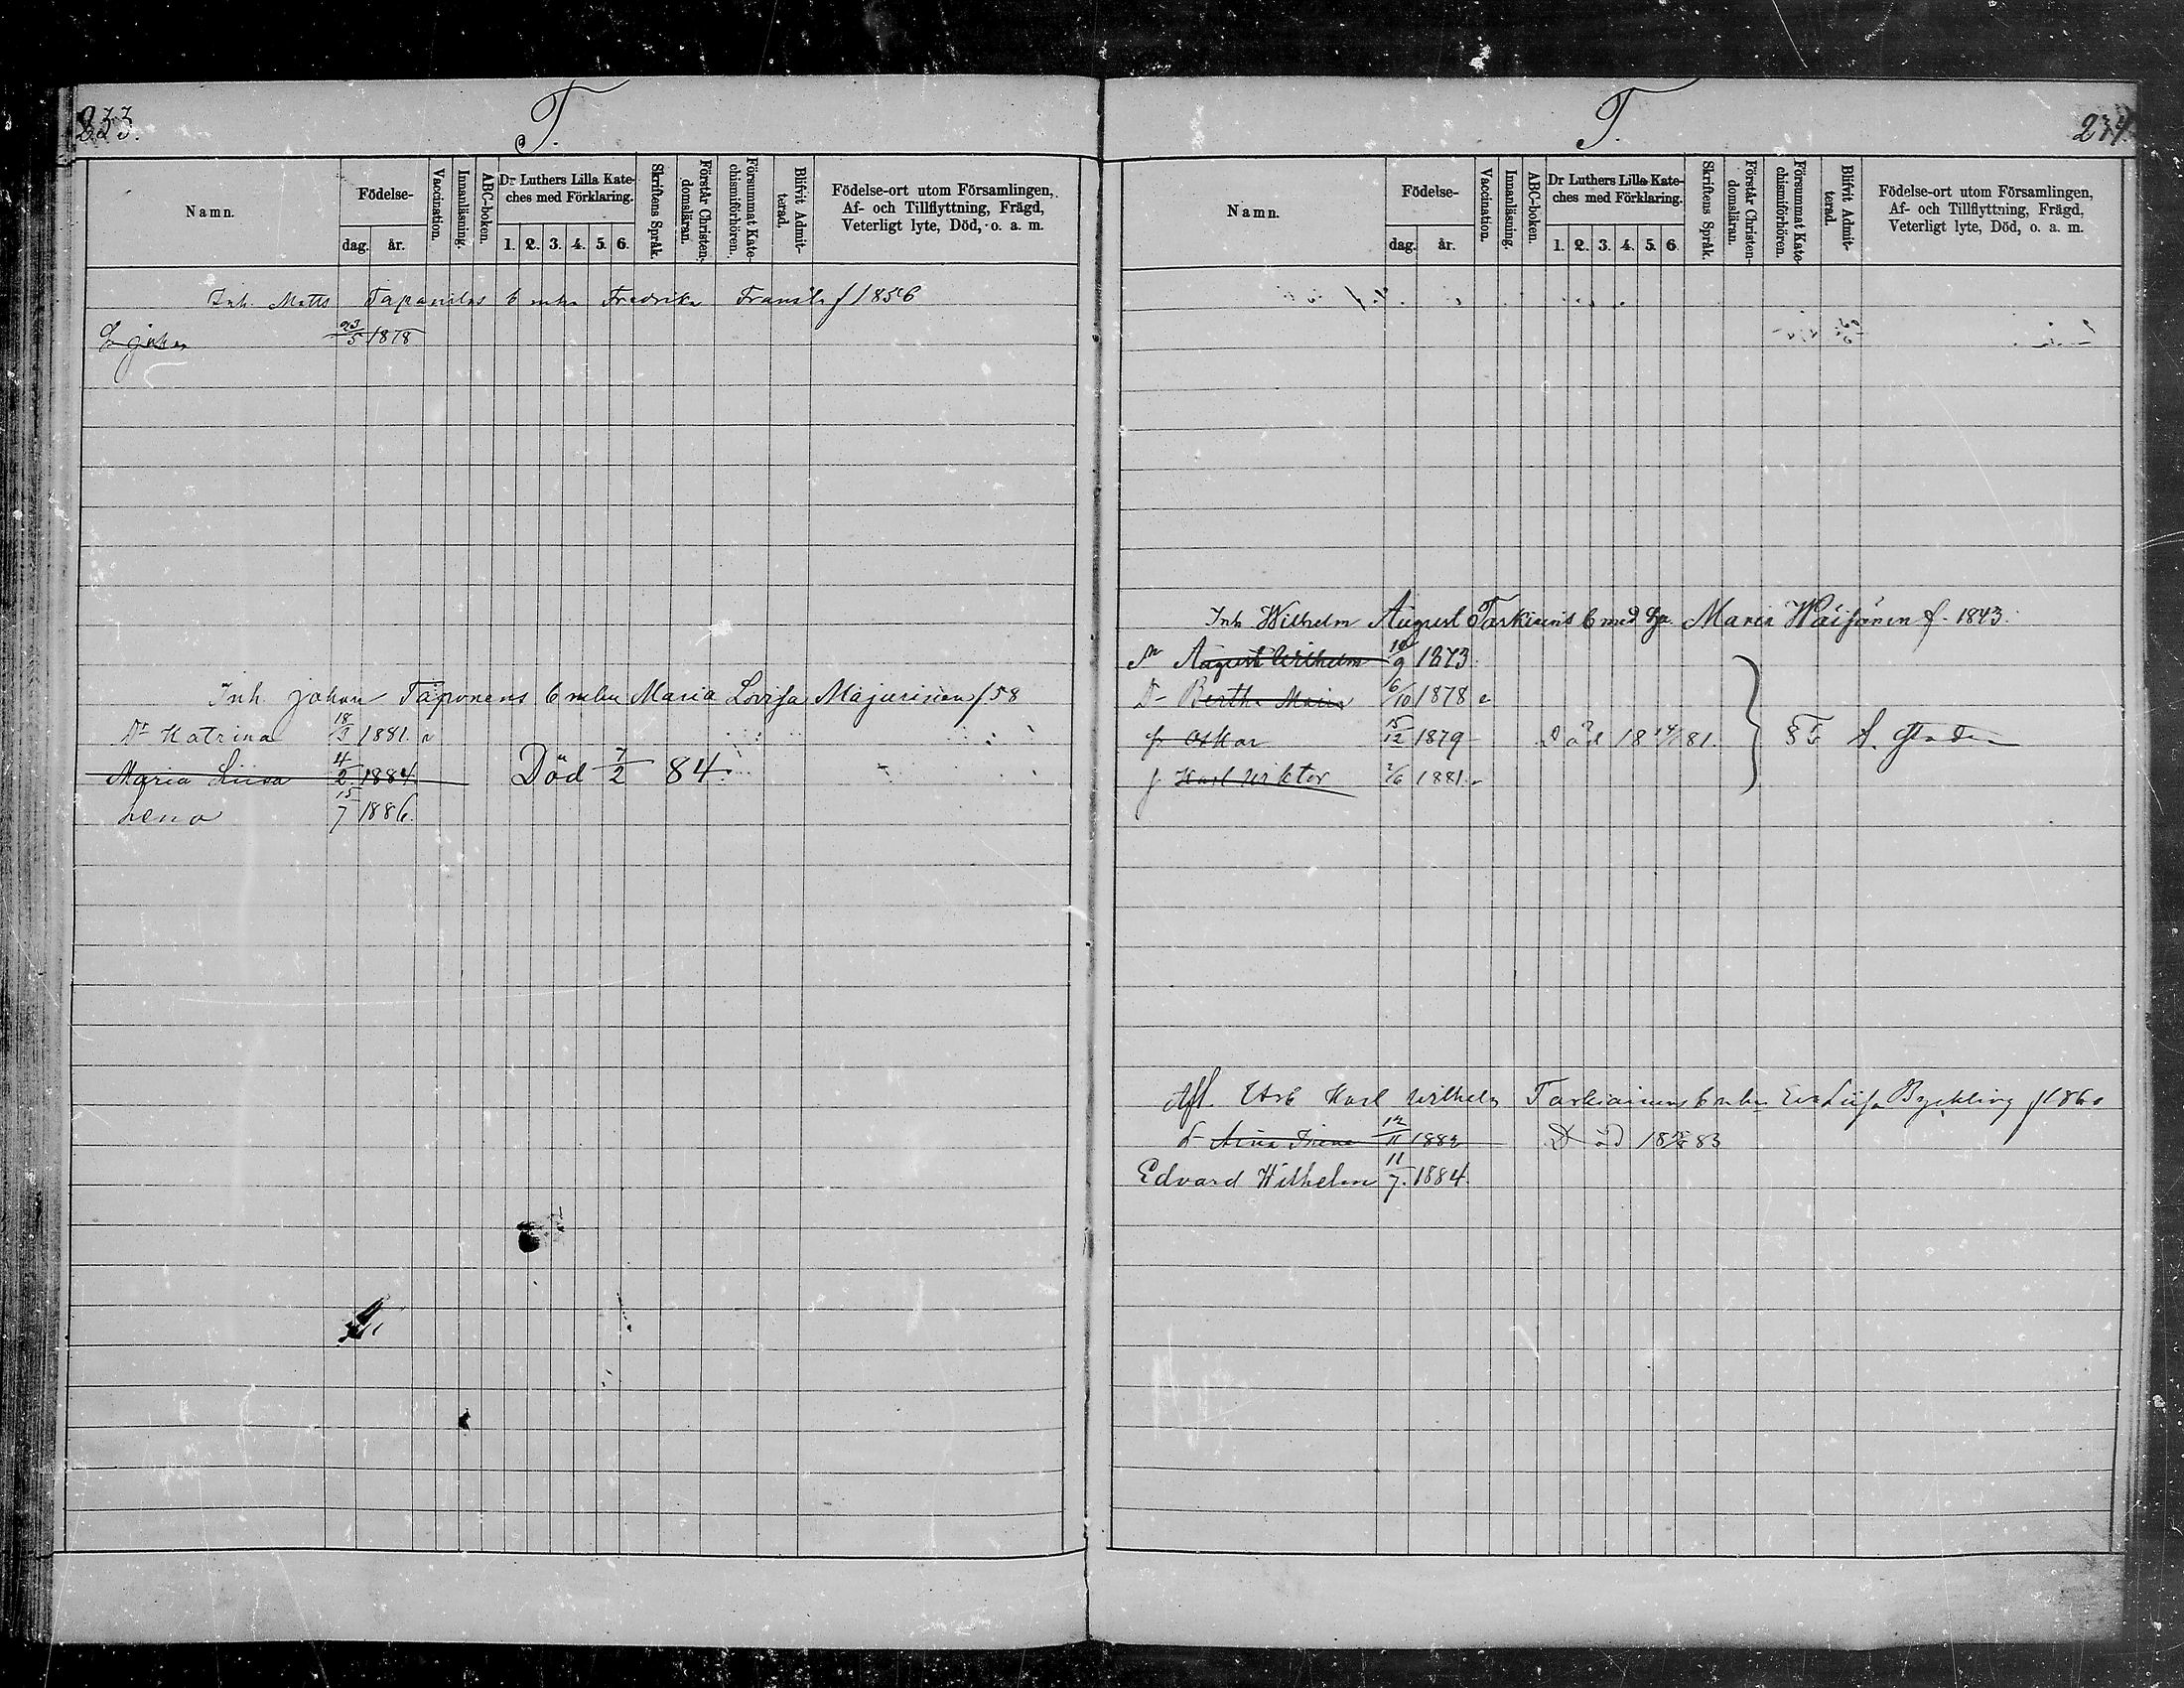 233.
T.
Namn.
Födelse-
dag.
år.
Vaccination.
Innanläsning.
ABC-boken.
Dr Luthers Lilla Kate-
ches med Förklaring.
1. 2. 3. 4. 5. 6.
Skriftens Språk.
Förstår Christen-
domsläran.
Försummat Kate-
chismiförhören.
Blifvit Admit-
terad.
Födelse-ort utom Församlingen,
Af- och Tillflyttning, Frägd,
Veterligt lyte, Död, o. a. m.
Inh. Matts Tapanilas Fredrika f 1856
23/5 1878
Inh. Johan Taponens Maria Lovisa Majurinen f 58
Dr Katrina 18/3 1881.
Maria Liisa 4/2 1884 Död 7/2 84.
Lena 15/7 1886.
T.
234.
Namn.
Födelse-
dag.
år.
Vaccination.
Innanläsning.
ABC-boken.
Dr Luthers Lilla Kate-
ches med Förklaring.
1. 2. 3. 4. 5. 6.
Skriftens Språk.
Förstår Christen-
domsläran.
Försummat Kate-
chismiförhören.
Blifvit Admit-
terad.
Födelse-ort utom Församlingen,
Af- och Tillflyttning, Frägd,
Veterligt lyte, Död, o. a. m.
Inh. Wilhelm August Tarkiains med Maria Wäisänen f. 1843.
August Wilhelm 1873
D- Bertha Maria 6/10 1878
Oskar 15/12 1879 Död 81.
Karl Viktor 2/6 1881
Karl Wilhelm Tarkiainens Eva Liisa Byckling f 1860
Aina Irene 12/11 1882 Död 83
Edvard Wilhelm 11/7. 1884.